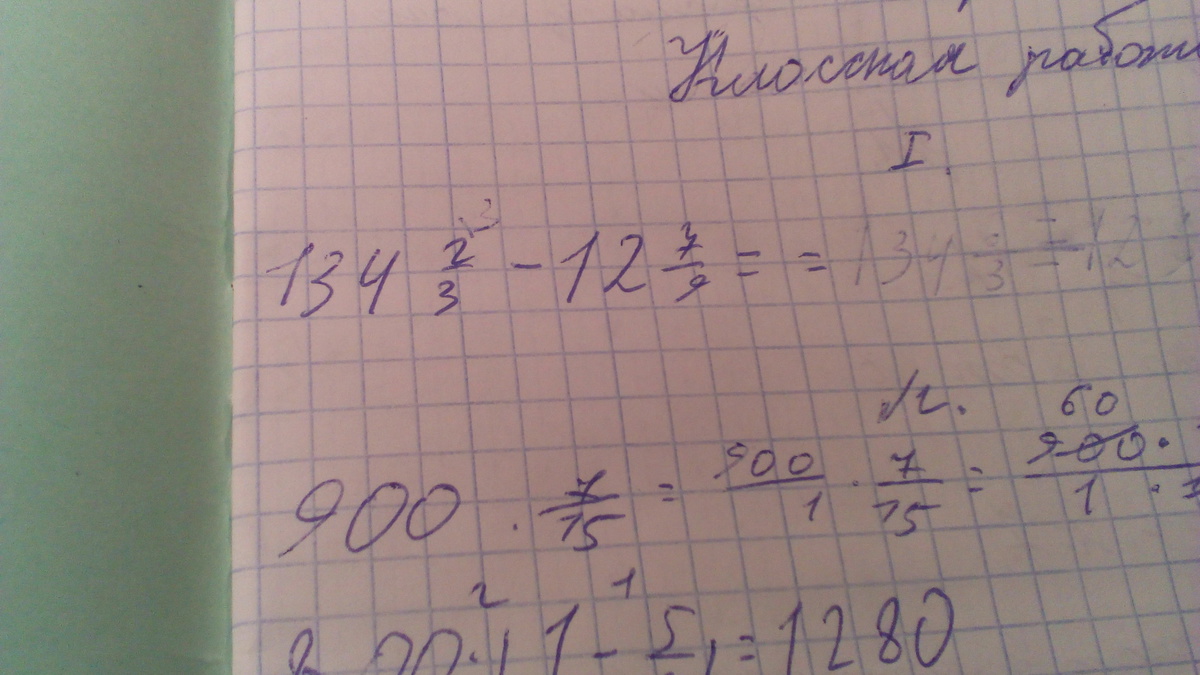 Классная работ
I.
134 2/3 - 12 7/9 = = 134 2/3 - 12
2.
900 · 7/15 = 900/1 · 7/15 = 60 900 · / 1 ·
1 - 5 = 1280